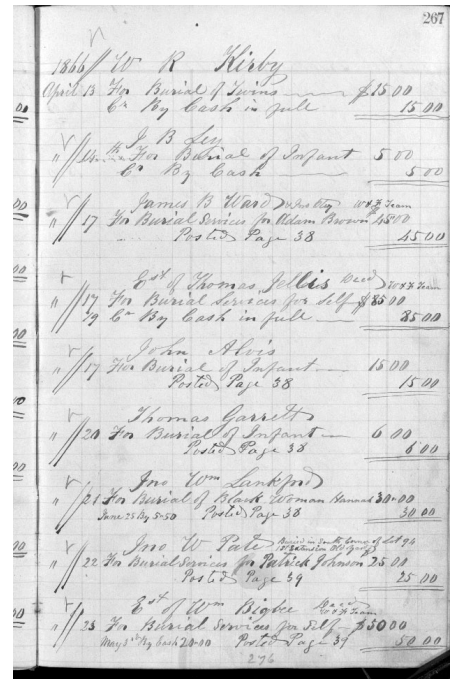 267
1866 W R Kirby
April 13 For Burial of Twins $15 00
Cr By Cash in full 15 00
J B Ley
" 14 For Burial of Infant 5 00
Cr By Cash 5 00
James B Ward W & F Team
" 17 For Burial Services for Adam Brown 45 00
Posted Page 38 45 00
Est of Thomas Jellis Decd W & F Team
" 17 For Burial Services for Self $85 00
19 Cr By Cash in full 85 00
John Alvis
" 17 For Burial of Infant 15 00
Posted Page 38 15 00
Thomas Garrett
" 20 For Burial of Infant 6 00
Posted Page 38 6 00
Jno Wm Lankford
" 21 For Burial of Black Woman Hannah 30 00
June 25 By 5-50 Posted Page 38 30 00
Jno W Pate Buried in South Corner of Lot 94
1st Extension Old
" 22 For Burial Services for Patrick Johnson 25 00
Posted Page 39 25 00
Est of Wm Bigbee Decd W & F Team
" 23 For Burial Services for Self $50 00
May 3rd By Cash 20-00 Posted Page 39 50 00
276